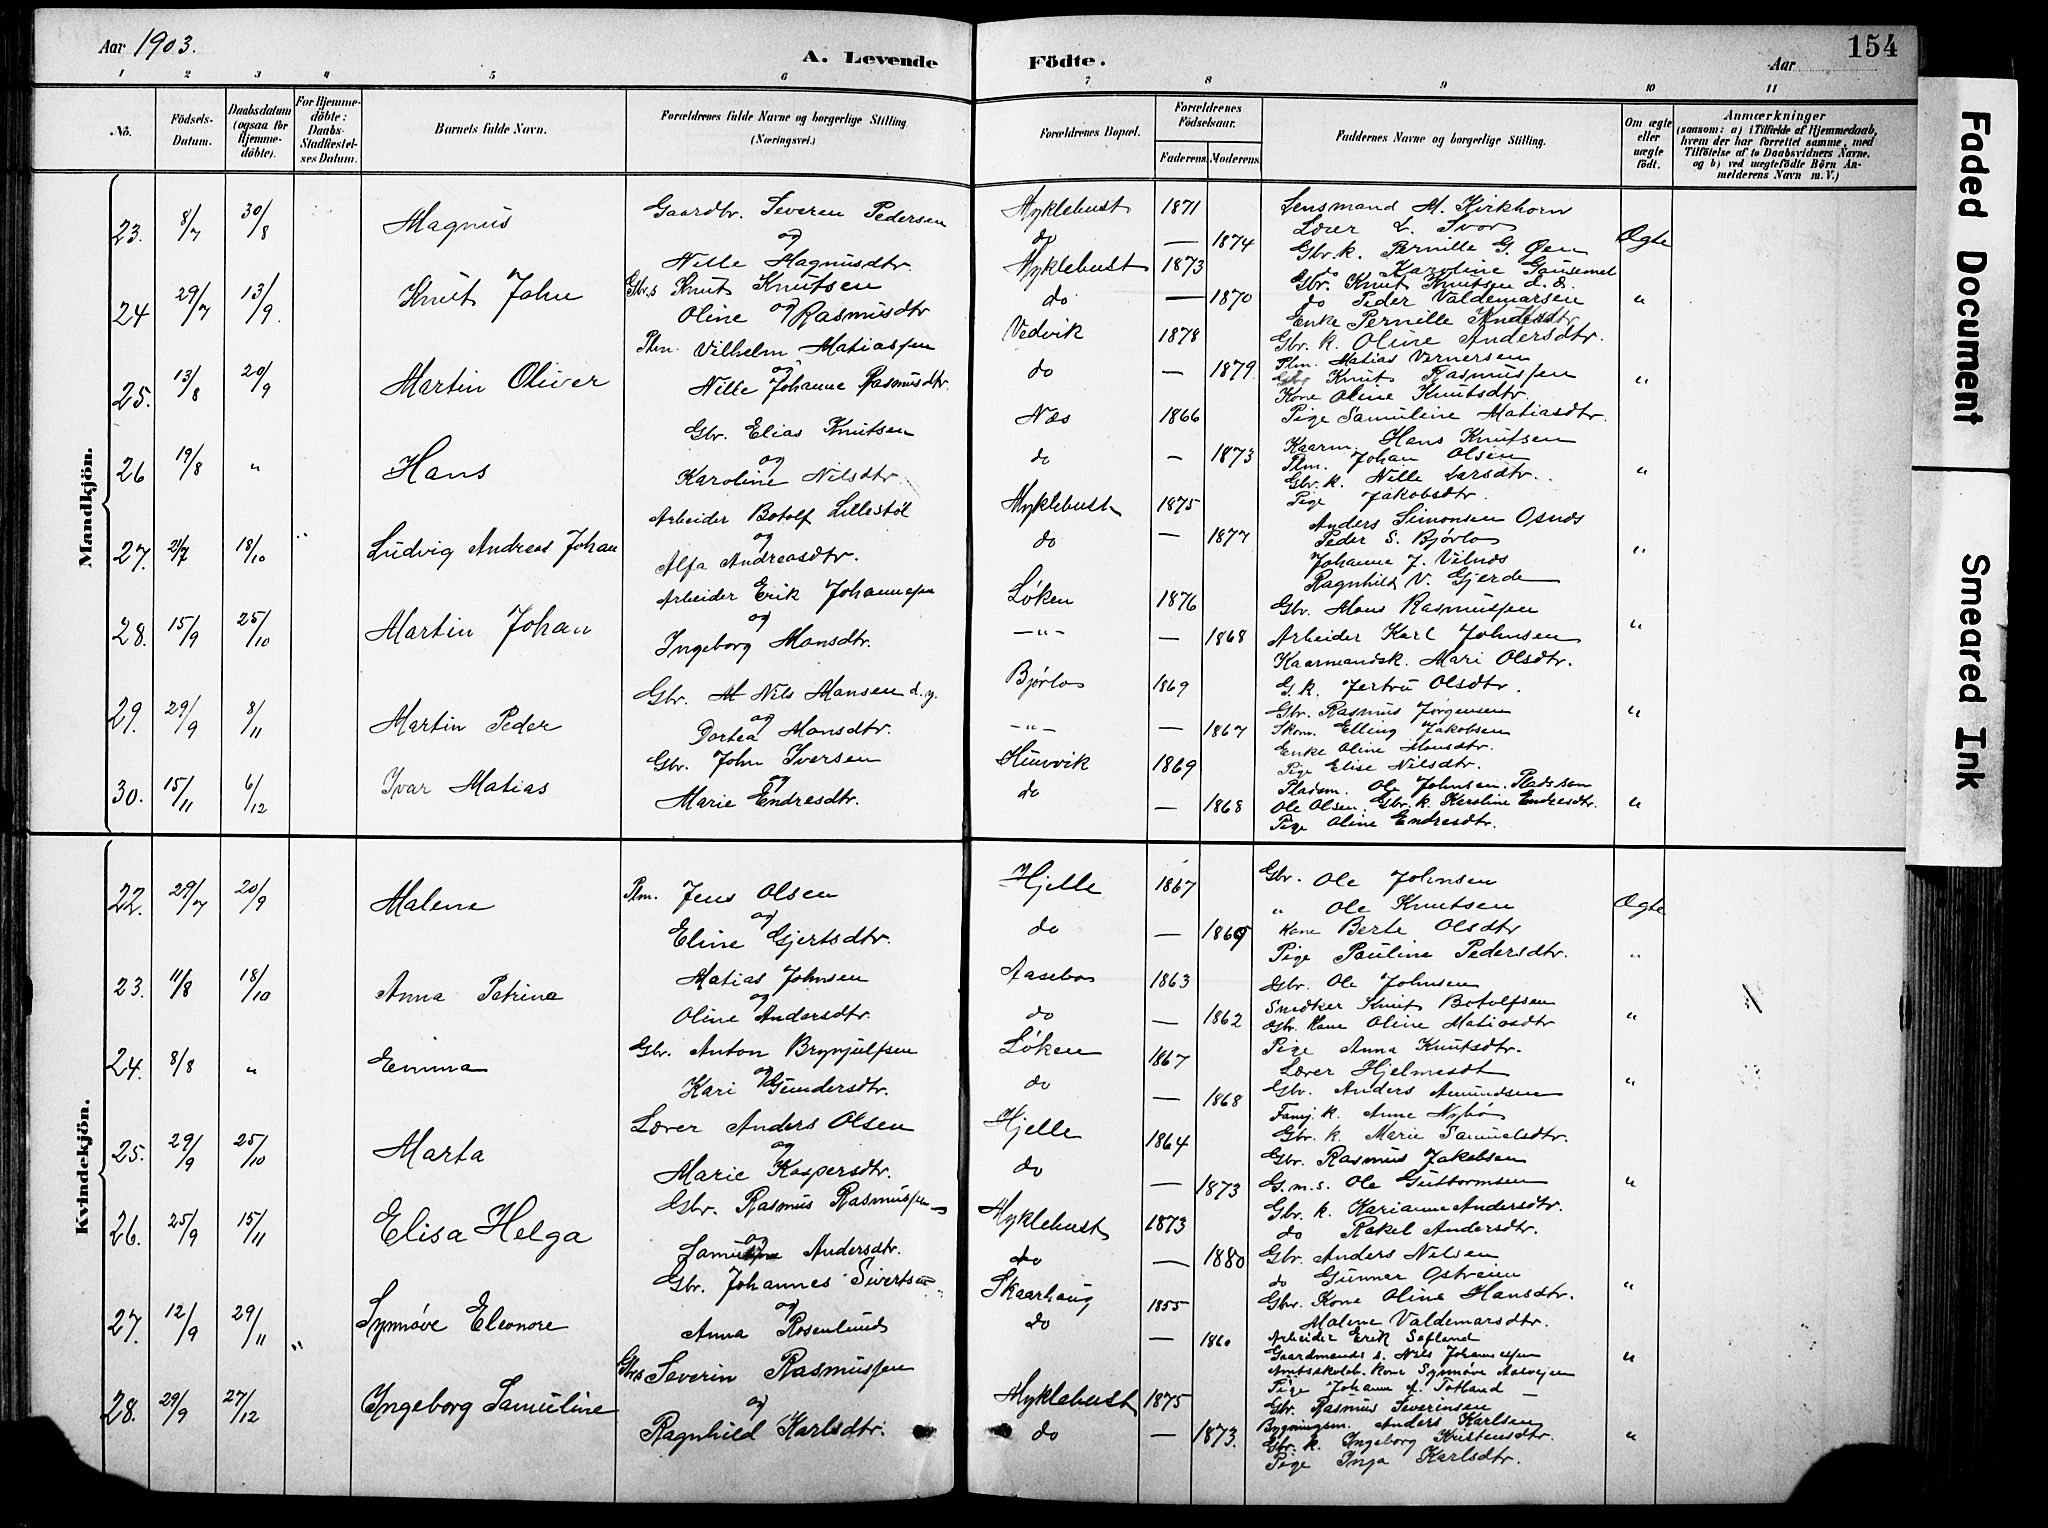 Aar 1903.
A. Levende Födte.
Aar
154
1 2 3 4 5 6 7 8 9 10 11
No.
Födsels-Datum.
Daabsdatum (ogsaa for Hjemme-döbte).
For Hjemme-döbte: Daabs-Stadfestel-ses Datum.
Barnets fulde Navn.
Forældrenes fulde Navne og borgerlige Stilling (Næringsvei.)
Forældrenes Bopæl.
Forældrenes Födselsaar.
Faderens. Moderens.
Faddernes Navne og borgerlige Stilling.
Om ægte eller uægte födt.
Anmærkninger
(saasom: a) i Tilfælde af Hjemmedaab, hvem der har forrettet samme, med Tilföielse af to Daabsvidners Navne. og b) ved uægtefödte Börn An-melderens Navn m. V.)
Mandkjön.
23. 8/7 30/8 Magnus
Gaardbr. Severin Pedersen
og
Nille Magnusdtr.
Myklebust 1871
do — 1874
Lensmand M. Kirkhorn
Lærer L. Svor
Gbr. k. Pernille G. Øen
do Karoline Gausemel
Ægte
24 29/7 13/9. Knut John
Gbr.s Knut Knutsen
og
Oline Rasmusdtr
Myklebust 1873
do — 1870
Gbr. Knut Knutsen d.æ.
do Peder Valdemarsen
Enke Pernille Knutsdtr
Gbr. k. Oline Andersdtr.
"
25. 13/8 20/9 Martin Oliver
Plm. Vilhelm Matiassen
og
Nille Johanne Rasmusdtr.
Vedvik 1878
do — 1879
Plm. Matias Vernersen
Gbr. Knut Rasmussen
Kone Oline Knutsdtr.
Pige Samuline Matiasdtr.
"
26 19/8 " Hans
Gbr. Elias Knutsen
og
Karoline Nilsdtr.
Næs 1866
do — 1873
Kaarm. Hans Knutsen
Plm. Johan Olsen
Gbr. k. Nille Larsdtr.
Pige Jakobsdtr.
"
27. 21/7 18/10 " Ludvig Andreas Johan
Arbeider Botolf Lillestöl
og
Alfa Andreasdtr.
Myklebust 1875
do — 1877
Anders Simonsen Osnes
Peder S. Bjørlo
Johanne J. Vilnes
Ragnhild V. Gjerde
"
28. 15/9 25/10 Martin Johan
Arbeider Erik Johannessen
og
Ingeborg Monsdtr.
Løken 1876
—"— — 1868
Gbr. Mons Rasmussen
Arbeider Karl Johnsen
Kaarmandsk. Mari Olsdtr.
G.k. Jertru Olsdtr.
"
29. 29/9 8/11 Martin Peder
Gbr. M Nils Monsen d.y.
og
Dortea Monsdtr.
Bjørlo 1869
—"— — 1867
Gbr. Rasmus Jørgensen
Skom. Elling Jakobsen
Enke Oline Monsdtr.
Pige Elise Nilsdtr.
"
30. 15/11 6/12 Ivar Matias
Gbr. John Iversen
og
Marie Endresdtr.
Hunvik 1869
do — 1868
Pladsm. Ole Johnsen. Pladssøn
Ole Olsen. Gbr. k. Karoline Endresdtr.
Pige Oline Endresdtr.
"
Kvindekjön.
22. 29/7 20/9 Malene
Plm. Jens Olsen
og
Eline Gjertsdtr.
Hjelle 1867
do — 1869
Gbr. Ole Johnsen
" Ole Knutsen
Kone Berte Olsdtr
Pige Pauline Pedersdtr.
Ægte
"
23. 11/8 18/10 Anna Petrine
Matias Johnsen
og
Oline Andersdtr.
Aasebø 1863
do — 1862
Gbr. Ole Johnsen
Snedker Knut Botolfsen
Gbr. Kone Oline Matiasdtr
Pige Anna Knutsdtr.
"
24. 8/8 " Emma
Gbr. Anton Brynjulfsen
og
Kari Gundersdtr.
Løken 1867
do — 1868
Lærer Hjelmeset
Gbr. Anders Amundsen
Fanej. k. Anne Nybø
Gbr. k. Marie Samuelsdtr.
"
25. 29/9 25/10 Marta
Lærer Anders Olsen
og
Marie Kaspersdtr.
Hjelle 1864
do — 1873
Gbr. Rasmus Jakobsen
G.m.s. Ole Guttormsen
Gbr. k. Karianne Andersdtr.
do Rakel Andersdtr.
"
26. 25/9 15/11 Elisa Helga
Gbr. Rasmus Rasmussen
og
Andersdtr.
Myklebust 1873
do — 1880
Gbr. Anders Nilsen
do Gunnar Ostreim
Gbr. Kone Oline Hansdtr.
Malene Valdemarsdtr.
"
27. 12/9 29/11 " Synnøve Eleonore
Gbr. Johannes Sivertsen
og
Anna Rosenlund
Skaarhaug 1855
do — 1860
Arbeider Erik Sefland
Gaardmands s. Nils Johannessen
Amtsskoleb. kone Synnøve Aasvejen
Pige Johanne A. Totland
"
28. 29/9 27/12 Ingeborg Samuline
Gbrs Severin Rasmussen
og
Ragnhild Karlsdtr.
Myklebust 1875
do — 1873.
Gbr. Rasmus Severinsen
Bygningsm. Anders Karlsen
Gbr. k. Ingeborg Kristensdtr.
Pige Inga Karlsdtr.
"
Faded Document
Smeared Ink